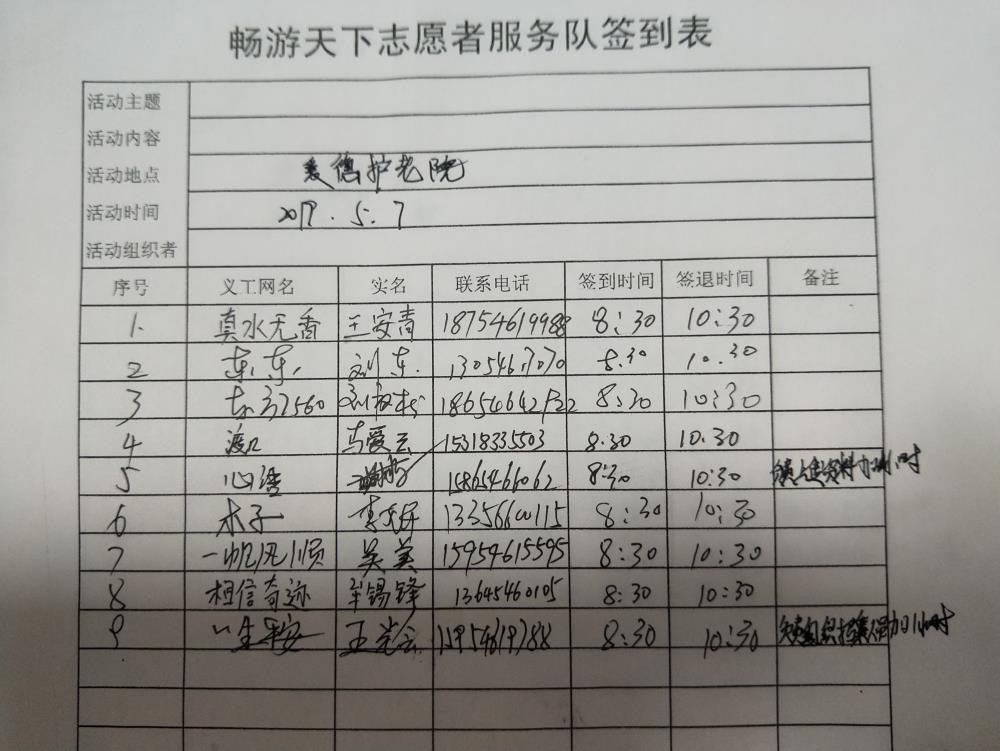 畅游天下志愿者服务队签到表
活动主题
活动内容
活动地点 爱德护老院
活动时间 2017.5.7
活动组织者
序号 义工网名 实名 联系电话 签到时间 签退时间 备注
1. 真水无香 王安青 18754619988 8:30 10:30
2 东东 刘东 13054617070 8:30 10.30
3 8:30 10:30
4 渡口 马爱云 15318335503 8:30 10.30
5 心语 15865466062 8:30 10:30
6 木子 13356600115 8:30 10:30
7 一帆风顺 吴美 15954615595 8:30 10:30
8 相信奇迹 牟锡锋 13645460105 8:30 10:30
9 一生平安 王光云 8:30 10:30